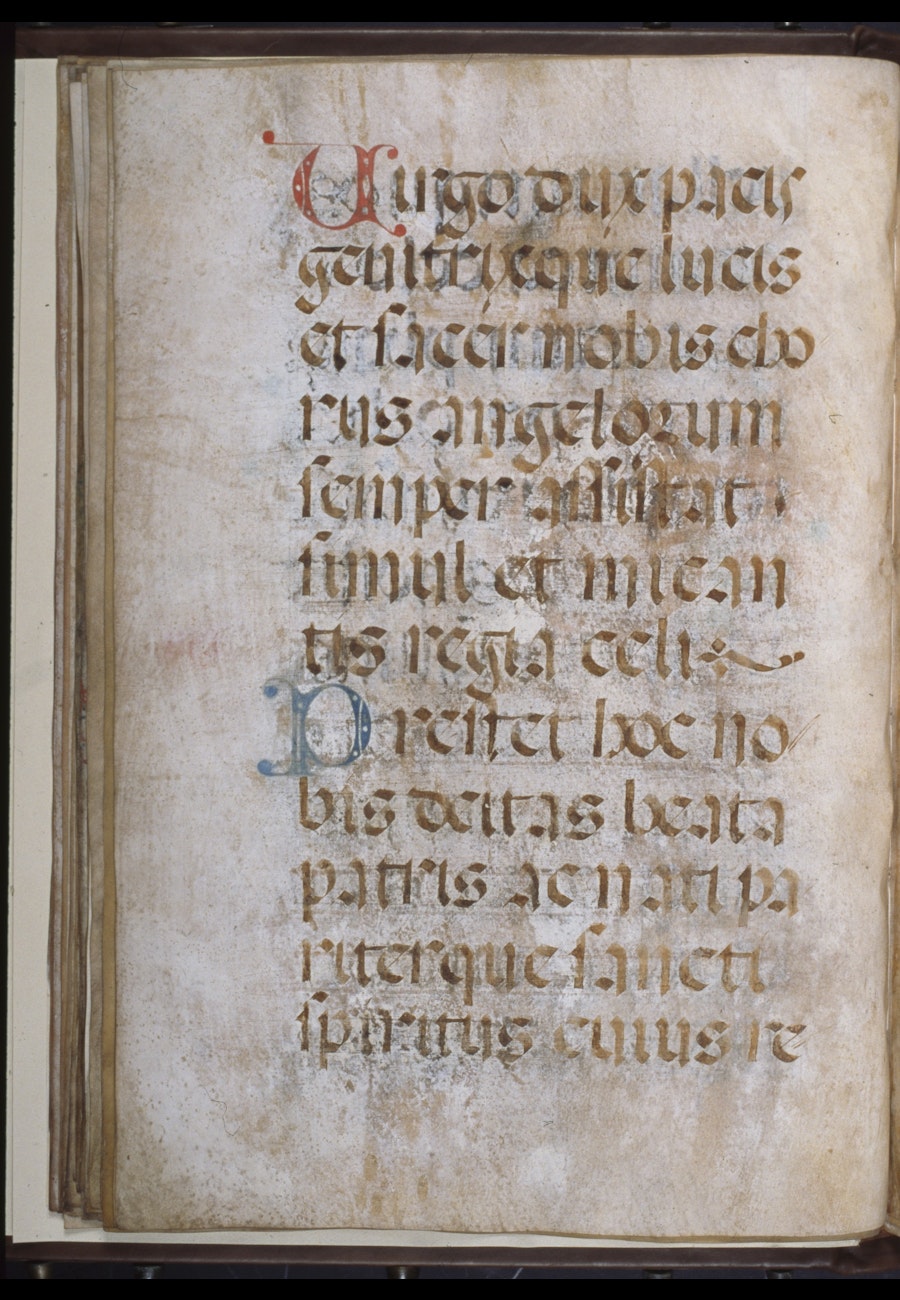 Uirgo dux pacis
genitrixque lucis
et sacer nobis cho
rus angelorum
semper assistat
simul et mican
tis regia celi
Prestet hoc no
bis deitas beata
patris ac nati pa
riterque sancti
spiritus cuius re